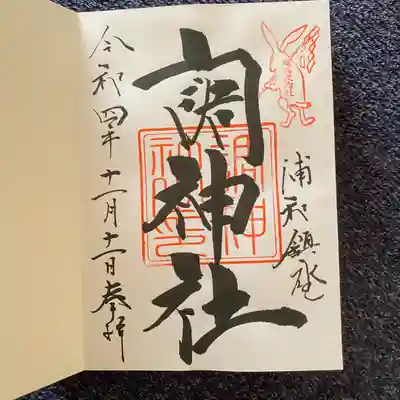 浦和鎮座
調神社
令和四年十一月十一日参拝